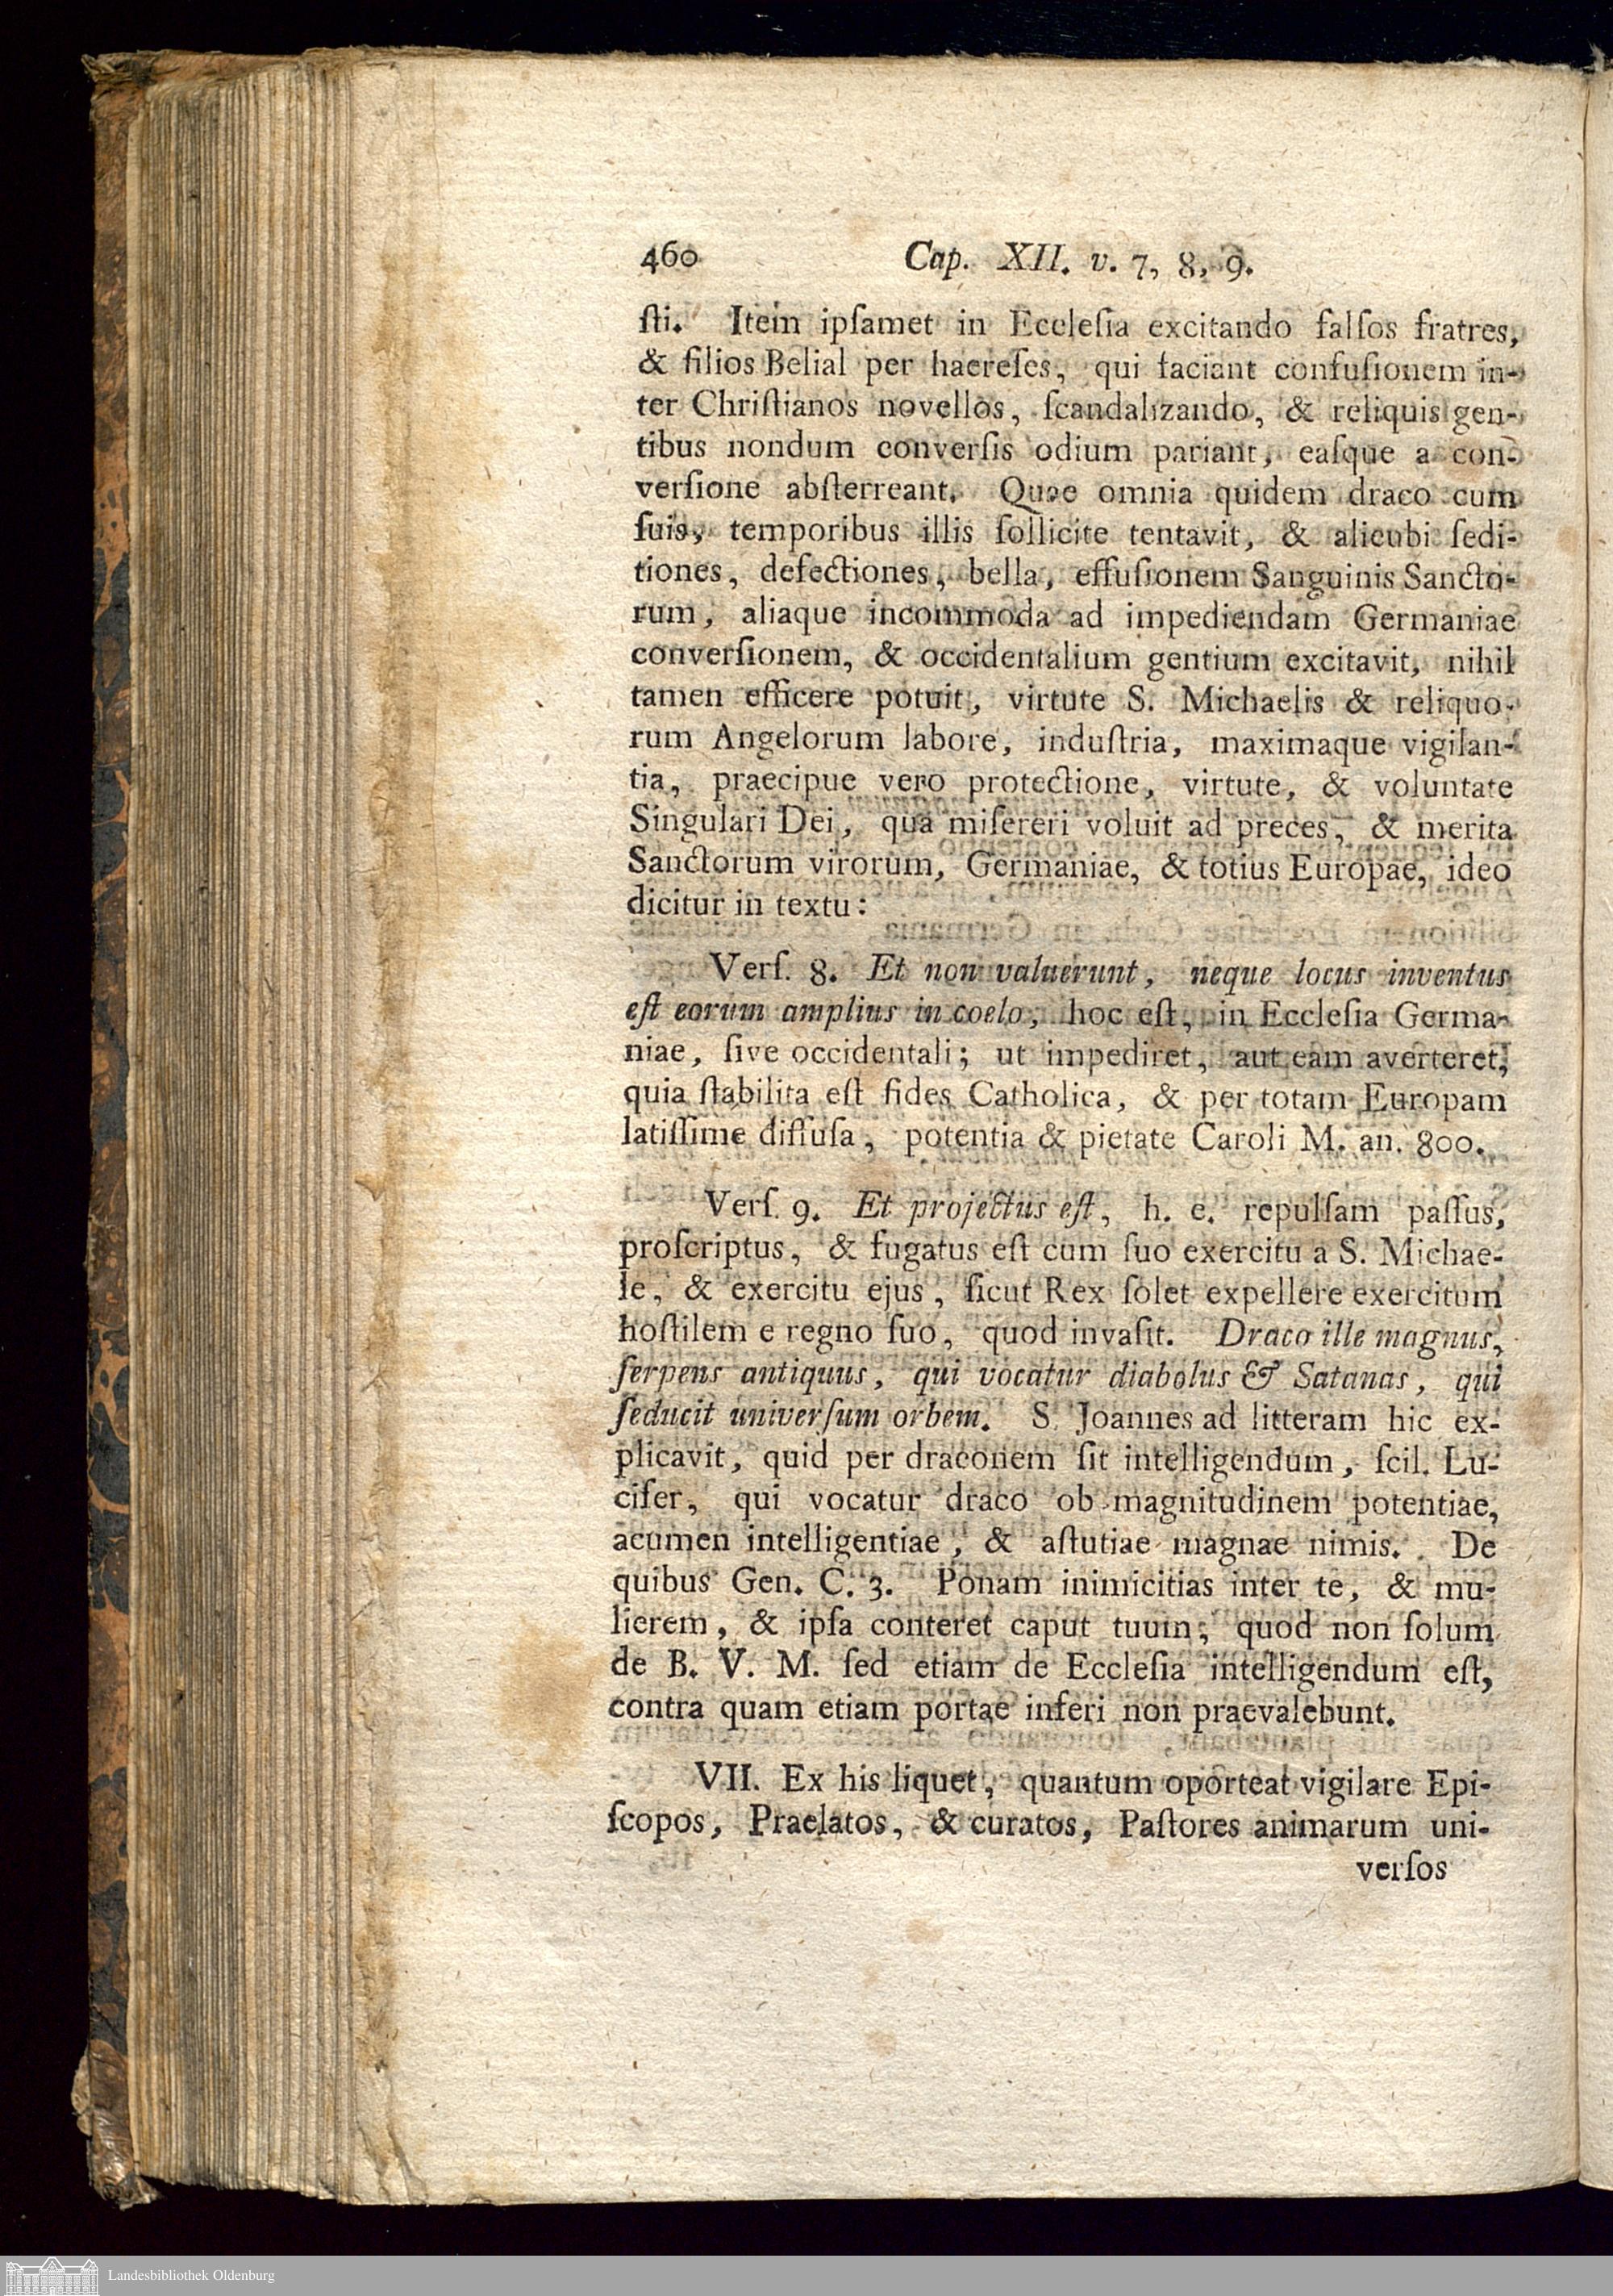 460 Cap. XII. v. 7, 8, 9.
ſti. Item ipſamet in Eccleſia excitando falſos fratres,
& filios Belial per haereſes, qui faciant confuſionem in-
ter Chriſtianos novellos, ſcandalizando, & reliquis gen-
tibus nondum converſis odium pariant, easque a con-
verſione abſterreant. Quae omnia quidem draco cum
ſuis, temporibus illis ſollicite tentavit, & alicubi ſedi-
tiones, defectiones, bella, effuſionem Sanguinis Sancto-
rum, aliaque incommoda ad impediendam Germaniae
converſionem, & occidentalium gentium excitavit, nihil
tamen efficere potuit, virtute S. Michaelis & reliquo-
rum Angelorum labore, induſtria, maximaque vigilan-
tia, praecipue vero protectione, virtute, & voluntate
Singulari Dei, qua miſereri voluit ad preces, & merita
Sanctorum virorum, Germaniae, & totius Europae, ideo
dicitur in textu:
Verſ. 8. Et non valuerunt, neque locus inventus
eſt eorum amplius in coelo, hoc eſt, in Eccleſia Germa-
niae, ſive occidentali; ut impediret, aut eam averteret,
quia ſtabilita eſt fides Catholica, & per totam Europam
latiſſime diffuſa, potentia & pietate Caroli M. an. 800.
Verſ. 9. Et projectus eſt, h. e. repulſam paſſus,
proſcriptus, & fugatus eſt cum ſuo exercitu a S. Michae-
le, & exercitu ejus, ſicut Rex ſolet expellere exercitum
hoſtilem e regno ſuo, quod invaſit. Draco ille magnus,
ſerpens antiquus, qui vocatur diabolus & Satanas, qui
ſeducit univerſum orbem. S. Joannes ad litteram hic ex-
plicavit, quid per draconem ſit intelligendum, ſcil. Lu-
cifer, qui vocatur draco ob magnitudinem potentiae,
acumen intelligentiae, & aſtutiae magnae nimis. De
quibus Gen. C. 3. Ponam inimicitias inter te, & mu-
lierem, & ipſa conteret caput tuum, quod non ſolum
de B. V. M. ſed etiam de Eccleſia intelligendum eſt,
contra quam etiam portae inferi non praevalebunt.
VII. Ex his liquet, quantum oporteat vigilare Epi-
ſcopos, Praelatos, & curatos, Paſtores animarum uni-
verſos
Landesbibliothek Oldenburg